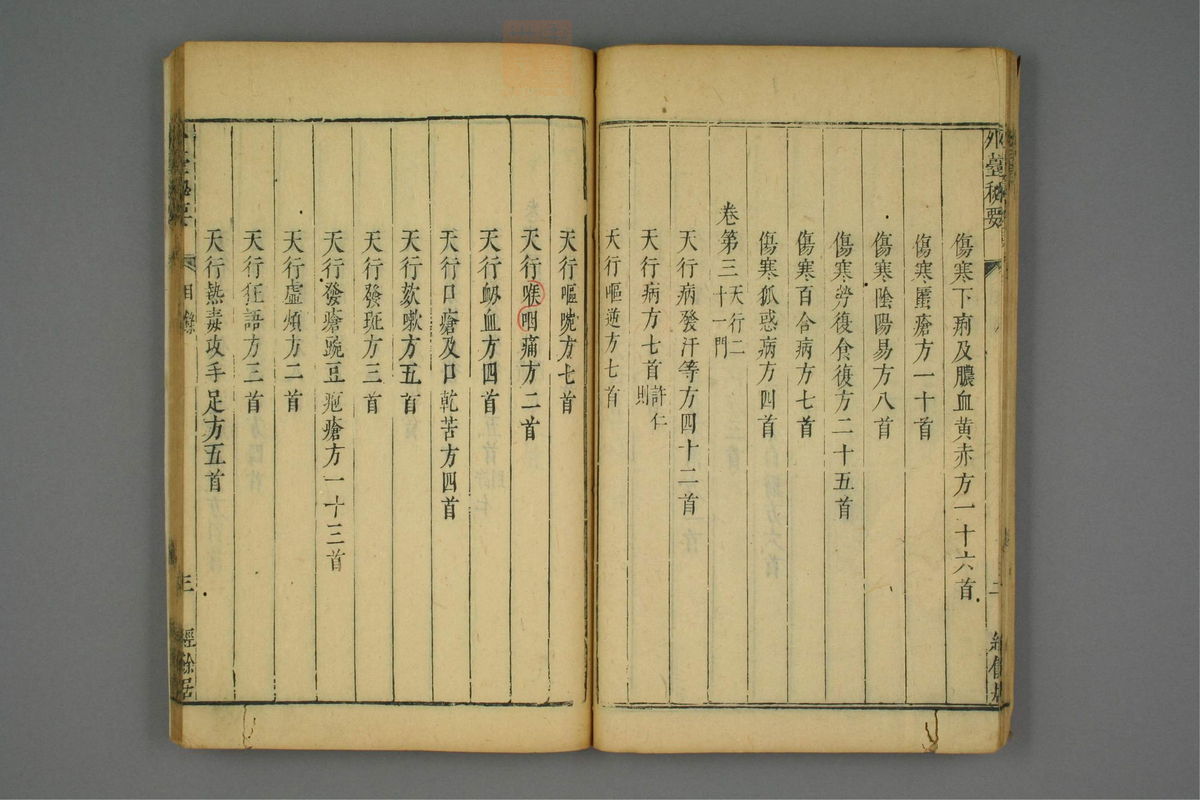 外臺秘要
二
傷寒下痢及膿血黃赤方一十六首
傷寒䘌瘡方一十首
傷寒陰陽易方八首
傷寒勞復食復方二十五首
傷寒百合病方七首
傷寒狐惑病方四首
卷第三天行二十一門
天行病發汗等方四十二首
天行病方七首許仁則
天行嘔逆方七首
天行嘔啘方七首
天行喉咽痛方二首
天行衂血方四首
天行口瘡及口乾苦方四首
天行欬嗽方五首
天行發斑方三首
天行發瘡豌豆疱瘡方一十三首
天行虛煩方二首
天行狂語方三首
天行熱毒攻手足方五首
目錄
三
經餘居